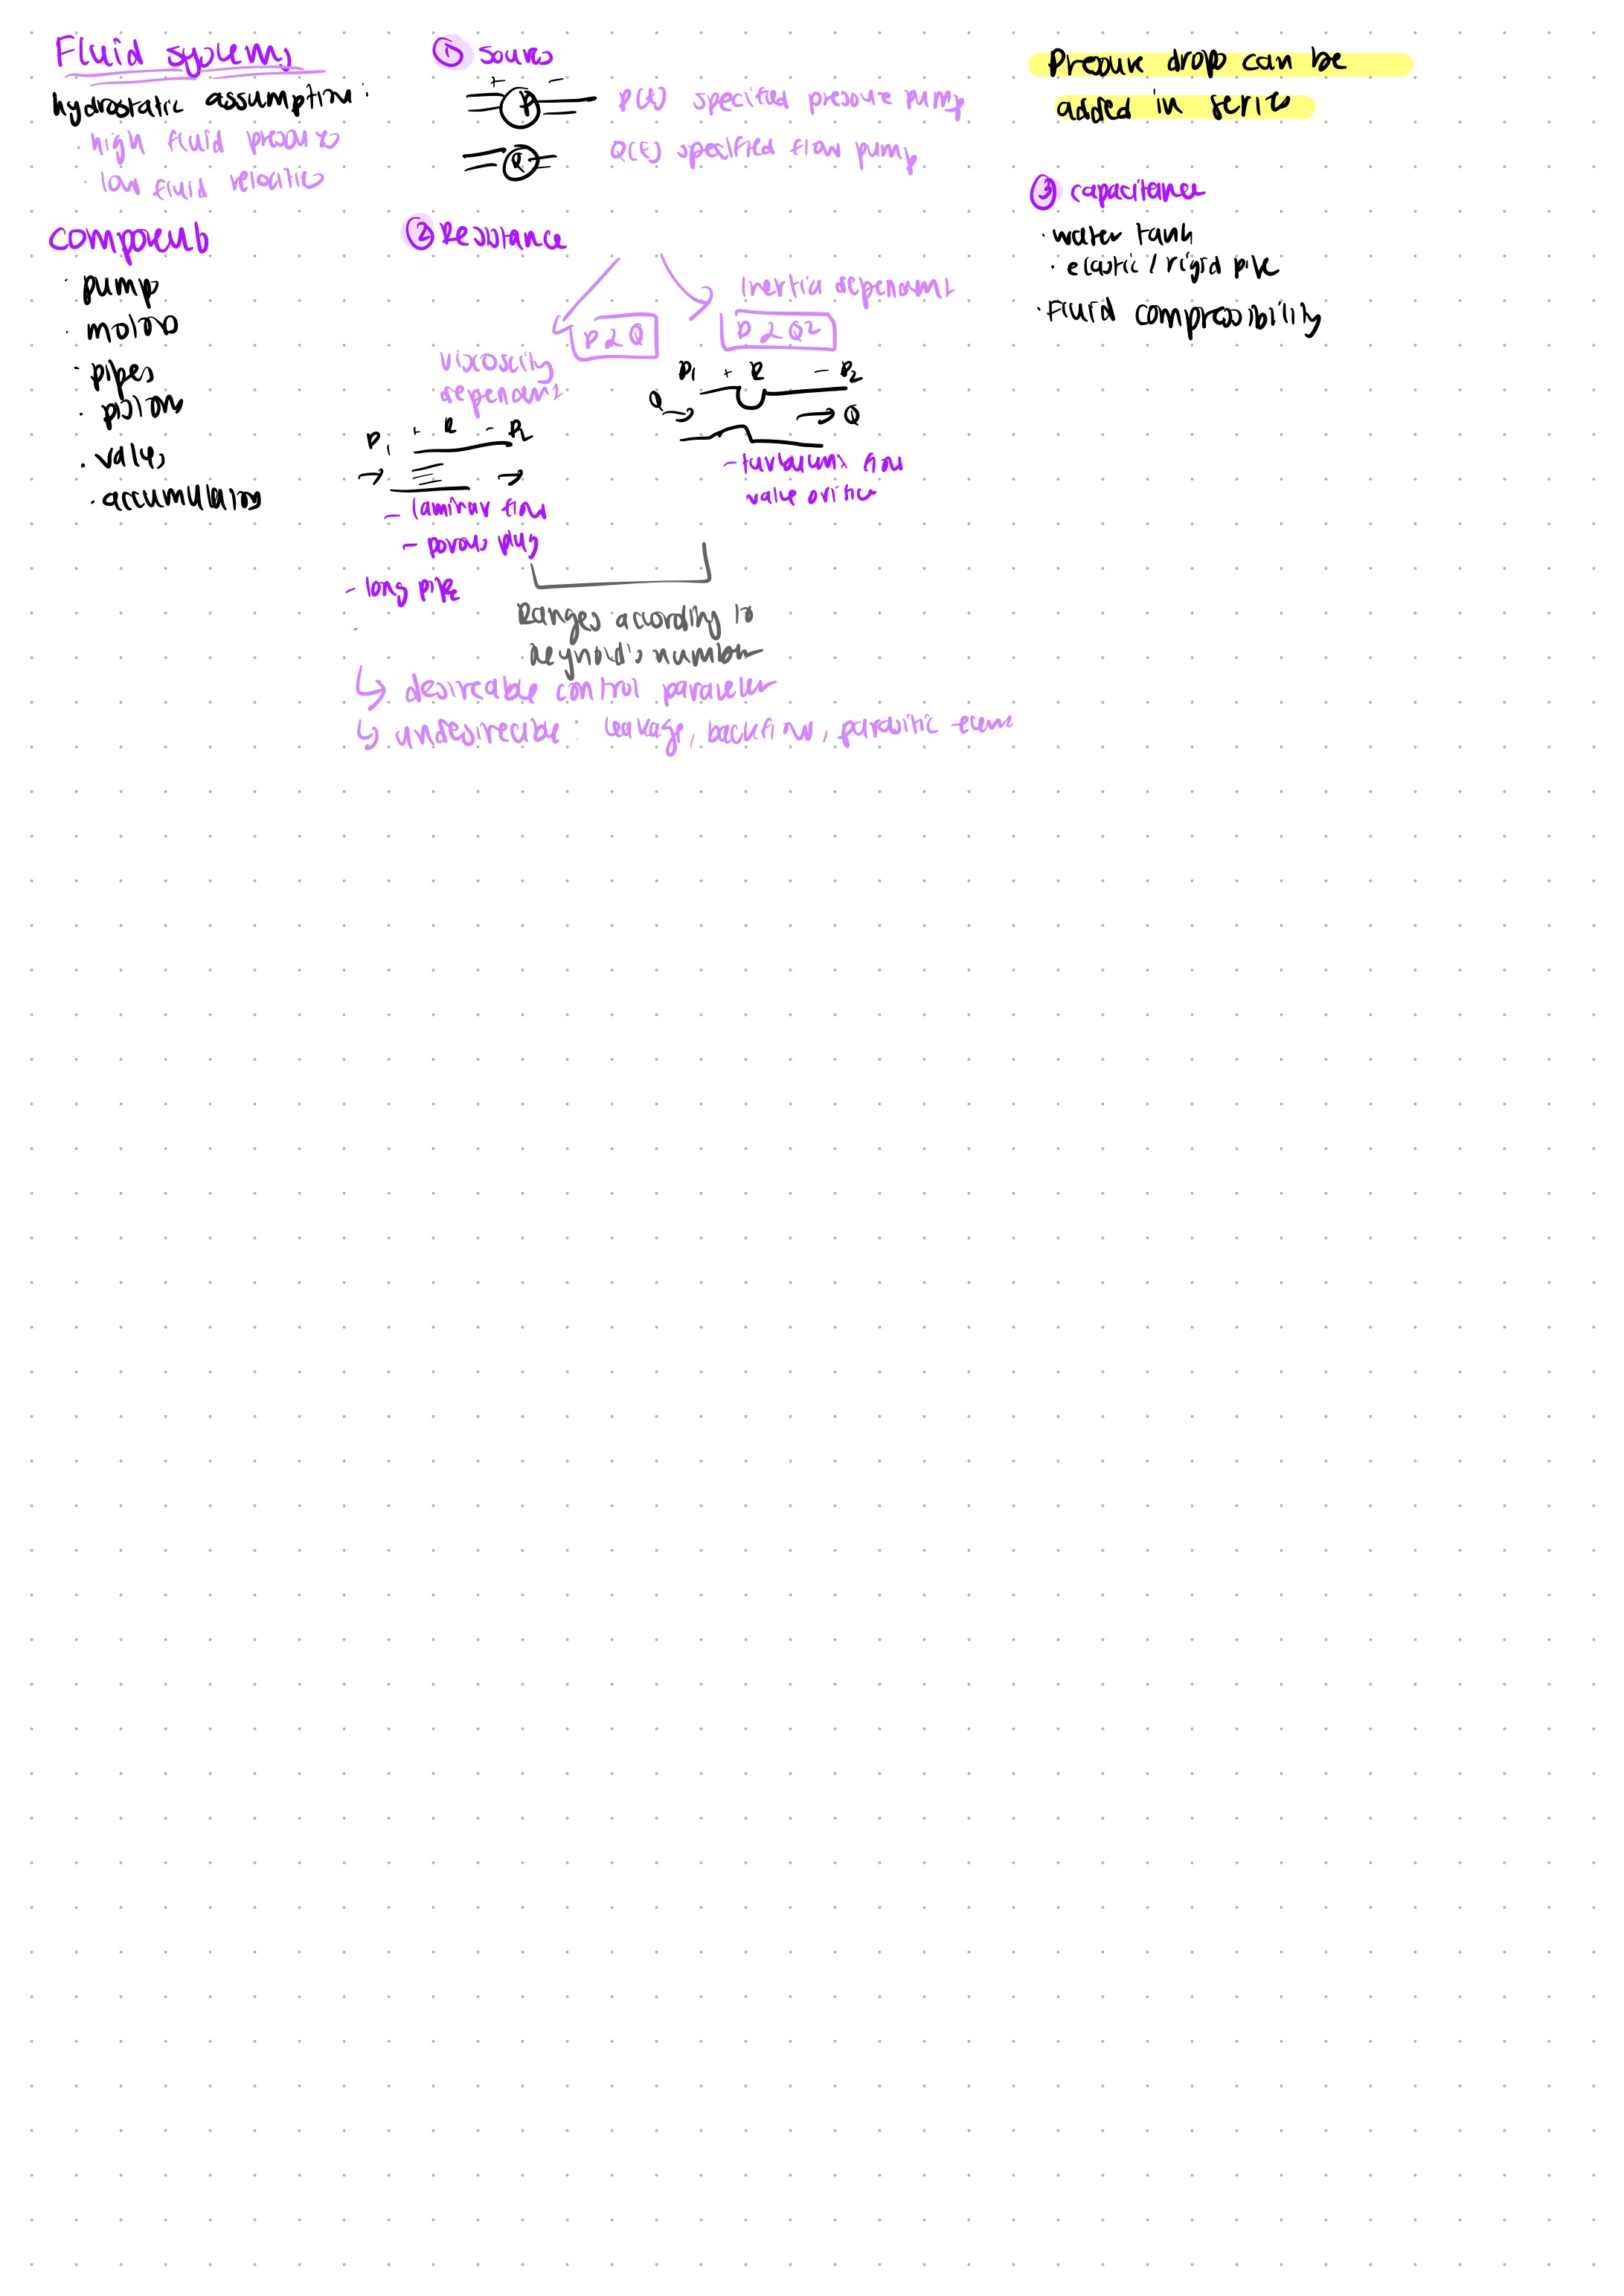 Fluid systems
hydrostatic assumption:
· high fluid pressures
· low fluid velocities
components
· pump
· motors
· pipes
· pistons
· valves
· accumulators
① sources
+ -
P
P(t) specified pressure pump
Q
Q(t) specified flow pump
② Resistance
viscoscity
dependant
P α Q
P₁ + R - P₂
- laminar flow
- porous plug
- long pipe
inertia dependant
P α Q²
P₁ + R - P₂
Q → → Q
- turbulent flow
valve orifice
Ranges according to
Reynold's number
↳ desireable control parameter
↳ undesireable: leakage, backflow, parasitic
Pressure drops can be
added in series
③ capacitance
· water tank
· elastic / rigid pipe
· Fluid compressibility